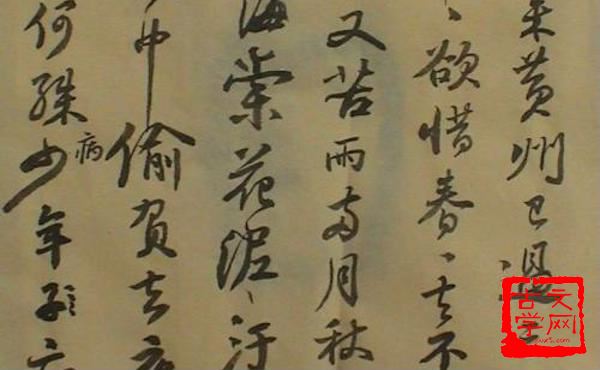 来黄州已過三
、欲惜春、去不
又苦雨兩月秋
海棠花泥、汙
中偷負去夜
何殊病少年子
古文
学网